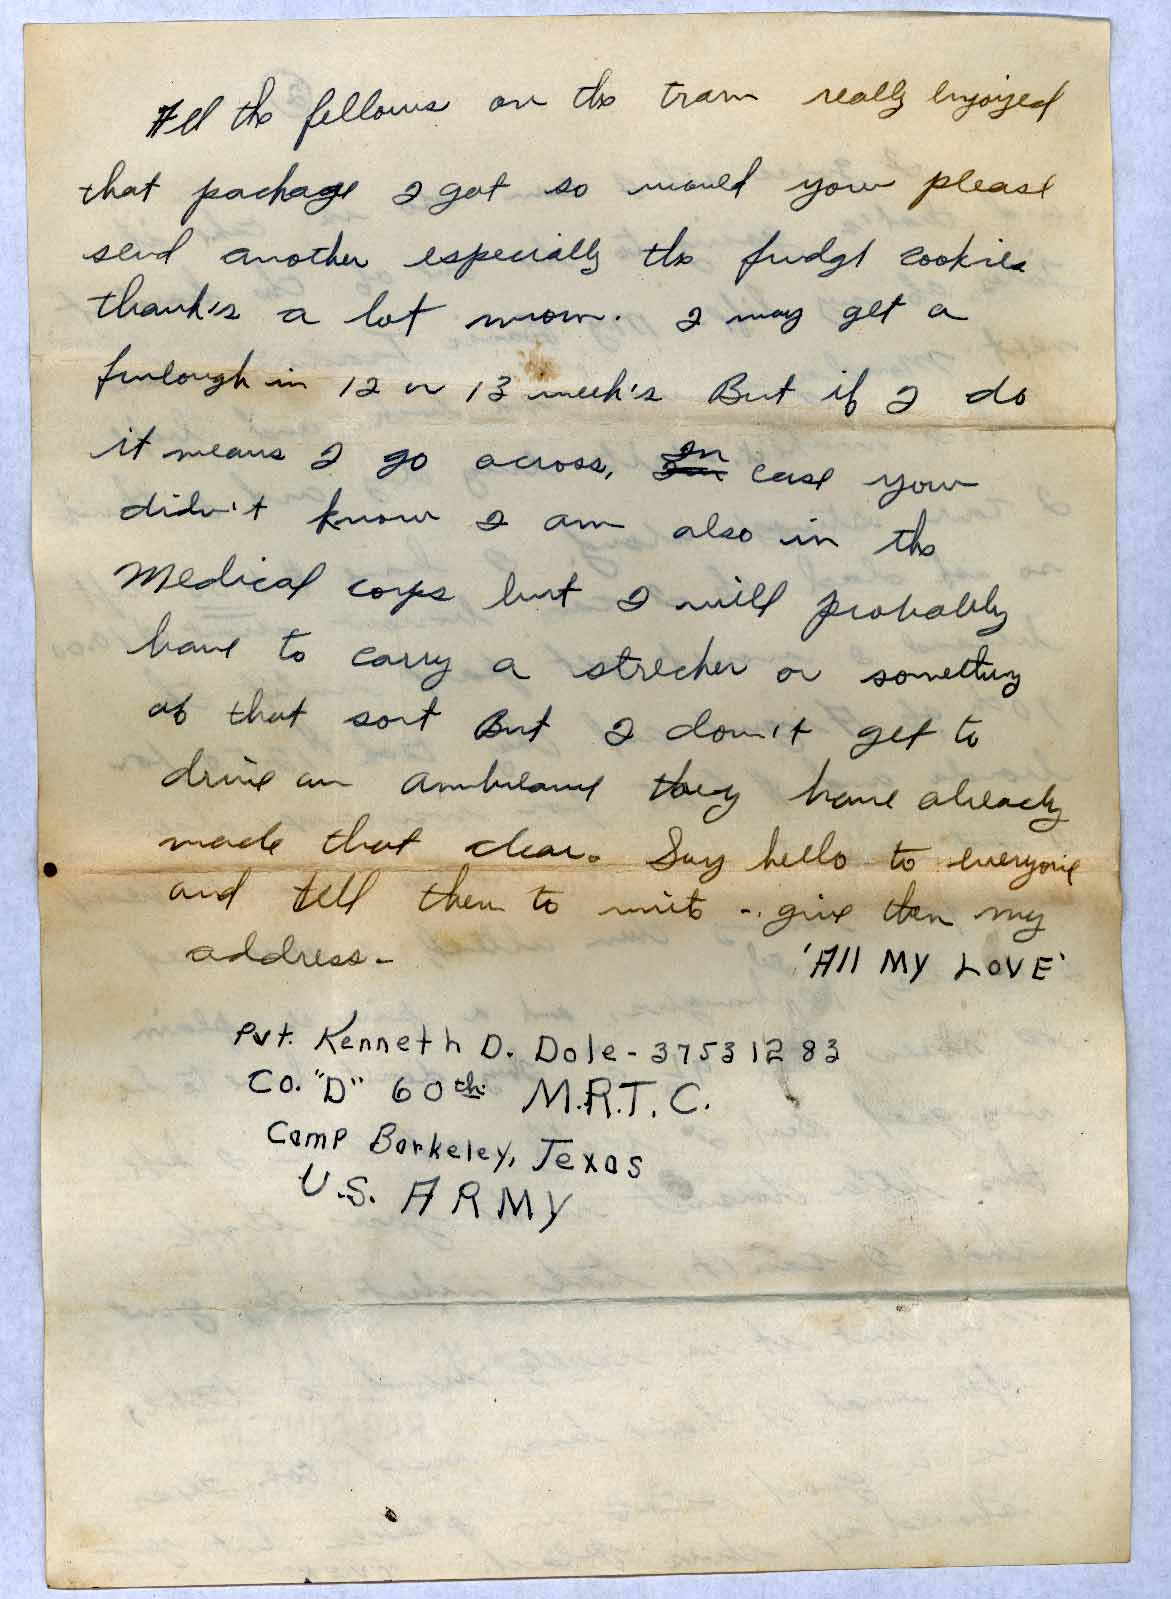 All the fellows on the train really enjoyed
that package I got so would you please
send another especially the fudge cookies
thank's a lot mom. I may get a
furlough in 12 or 13 week's But if I do
it means I go across, In case you
didn't know I am also in the
Medical corps but I will probably
have to carry a strecher or something
of that sort But I don't get to
drive an ambulance they have already
made that clear. Say hello to everyone
and tell them to write - give them my
address -
'All MY LOVE'
Pvt. Kenneth D. Dole - 37531283
Co. "D" 60th M.R.T.C.
Camp Barkeley, Texas
U.S. ARMY